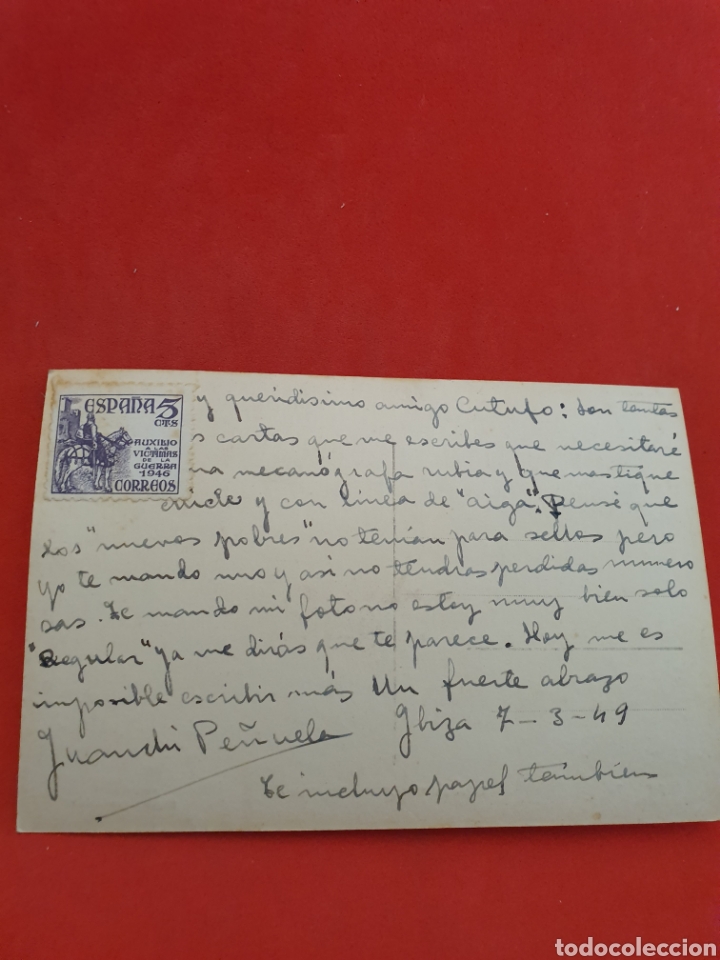 ESPAÑA 5
CTS
AUXILIO
A LAS
VICTIMAS
DE LA
GUERRA
1946
CORREOS
y queridisimo amigo Cutufo: son tantas
s cartas que me escribes que necesitaré
na mecanógrafa rubia y que mastique
chicle y con linea de "aiga". Pensé que
los "nuevos pobres" no tenian para sellos pero
yo te mando uno y asi no tendras perdidas numero
sas. Te mando mi foto no estoy muy bien solo
"regular" ya me dirás que te parece. Hoy me es
imposible escribir más Un fuerte abrazo
Juanchi Peñuela Ibiza 7-3-49
Te incluyo papel también
todocoleccion